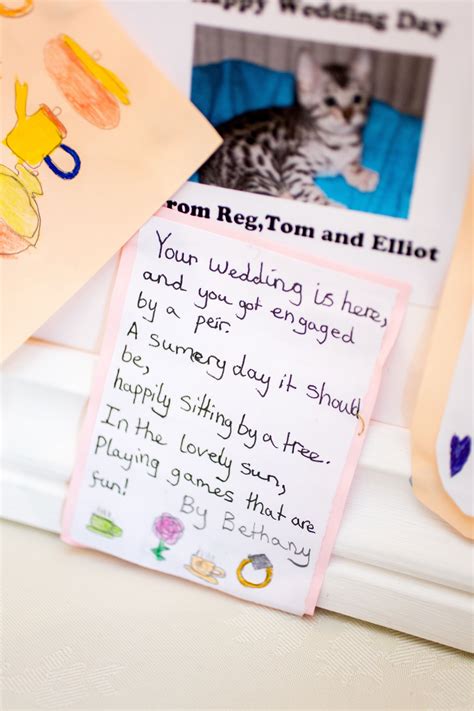 Happy Wedding Day
From Reg,Tom and Elliot
Your wedding is here,
and you got engaged
by a peir.
A sumery day it should
be,
happily sitting by a tree.
In the lovely sun,
Playing games that are
fun!
By Bethany